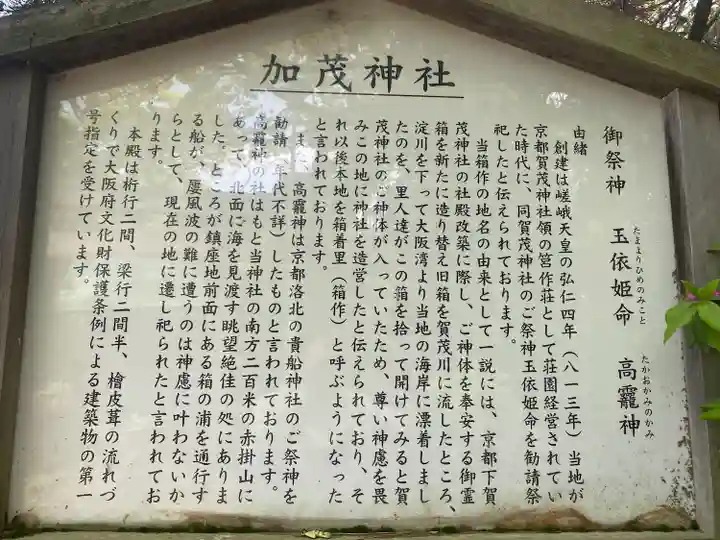 加茂神社
御祭神 玉依姫命 高龗神
たまよりひめのみこと
たかおかみのかみ
由緒
創建は嵯峨天皇の弘仁四年(八一三年)当地が
京都賀茂神社領の筥作荘として荘園経営されてい
た時代に、同賀茂神社のご祭神玉依姫命を勧請祭
祀したと伝えられております。
当箱作の地名の由来として一説には、京都下賀
茂神社の社殿改築に際し、ご神体を奉安する御霊
箱を新たに造り替え旧箱を賀茂川に流したところ、
淀川を下って大阪湾より当地の海岸に漂着しまし
たのを、里人達がこの箱を拾って開けてみると賀
茂神社のご神体が入っていたため、尊い神慮を畏
みこの地に神社を造営したと伝えられており、そ
れ以後本地を箱着里(箱作)と呼ぶようになった
と言われております。
また、高龗神は京都洛北の貴船神社のご祭神を
勧請(年代不詳)したものと言われております。
高龗神の社はもと当神社の南方二百米の赤掛山に
あって、北面に海を見渡す眺望絶佳の処にありま
した。ところが鎮座地前面にある箱の浦を通行す
る船が、屡風波の難に遭うのは神慮に叶わないか
らとして、現在の地に遷し祀られたと言われてお
ります。
本殿は桁行二間、梁行二間半、檜皮葺の流れづ
くりで大阪府文化財保護条例による建築物の第一
号指定を受けています。